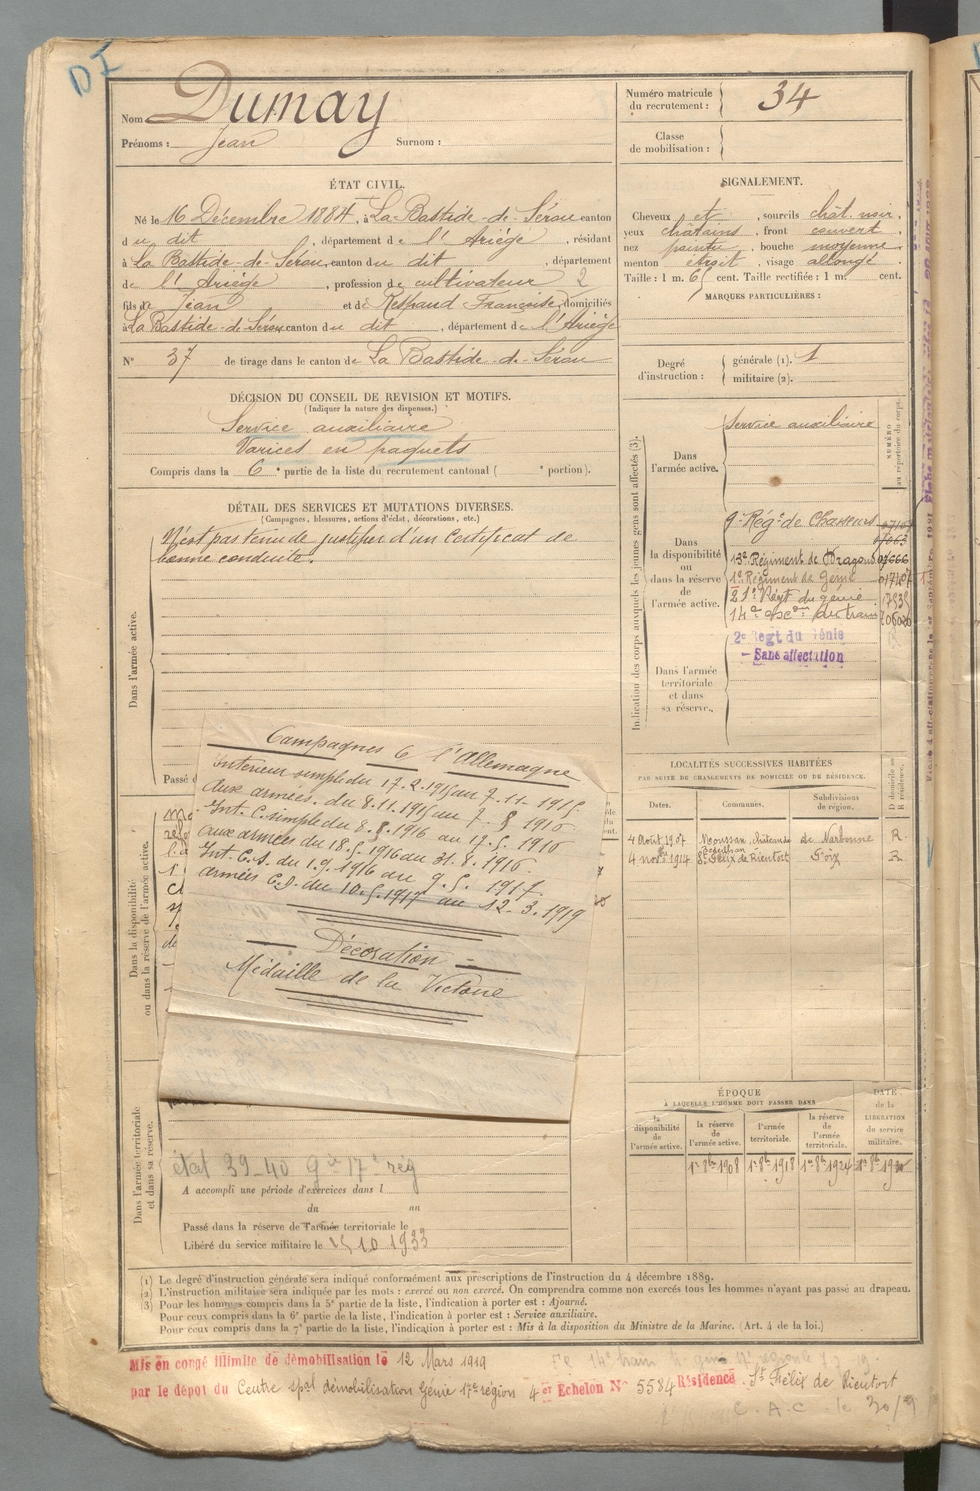 DI
Nom Dumay
Prénoms : Jean Surnom :
Numéro matricule du recrutement : 34
Classe de mobilisation :
ÉTAT CIVIL.
Né le 16 Décembre 1884, à La Bastide-de-Sérou canton
du dit, département de l'Ariège, résidant
à La Bastide-de-Serou, canton du dit, département
de l'Ariège, profession de cultivateur 2
fils de Jean et de Respaud Françoise, domiciliés
à La Bastide-de-Sérou canton du dit, département de l'Ariège
N° 37 de tirage dans le canton de La Bastide-de-Sérou
SIGNALEMENT.
Cheveux et, sourcils chât. noir,
yeux châtains, front couvert,
nez pointu, bouche moyenne
menton étroit, visage allongé.
Taille : 1 m. 65 cent. Taille rectifiée : 1 m. cent.
MARQUES PARTICULIÈRES :
Degré d'instruction : générale (1). 1
militaire (2).
DÉCISION DU CONSEIL DE REVISION ET MOTIFS.
(Indiquer la nature des dispenses.)
Service auxiliaire
Varices en paquets
Compris dans la 6e partie de la liste du recrutement cantonal ( e portion).
DÉTAIL DES SERVICES ET MUTATIONS DIVERSES.
(Campagnes, blessures, actions d'éclat, décorations, etc.)
N'est pas tenu de justifier d'un Certificat de
bonne conduite.
Dans l'armée active.
Passé
Dans la disponibilité
ou dans la réserve de l'armée active.
Campagnes C l'Allemagne
Intérieur simple du 17.2.1915 au 7.11-1915
Aux armées. du 8.11.1915 au 7.8 1916
Int. C. simple du 8.8.1916 au 17.5.1916
aux armées du 18.5.1916 au 31.8.1916.
Int. C.S. du 1.9.1916 au 9.5.1917.
armées C.D. du 10.5.1917 au 12-3.1919
Décoration
Médaille de la Victoire
Indication des corps auxquels les jeunes gens sont affectés (3).
NUMÉRO
au répertoire du corps.
Dans l'armée active.
Service auxiliaire
Dans la disponibilité ou dans la réserve de l'armée active.
9e Régt de Chasseurs
13e Régiment de Dragons
1er Régiment de Génie
21e Régt du génie
14e escon du train
2e Régt du Génie
- Sans affectation
Dans l'armée territoriale et dans sa réserve.
LOCALITÉS SUCCESSIVES HABITÉES
PAR SUITE DE CHANGEMENTS DE DOMICILE OU DE RÉSIDENCE.
Dates. Communes. Subdivisions de région. D domicile ou R résidence.
4 Août 1907 Moussan, de Narbonne R
4 nov. 1914 St Félix de Rientort Foix R
ÉPOQUE
À LAQUELLE L'HOMME DOIT PASSER DANS
la disponibilité de l'armée active. la réserve de l'armée active. l'armée territoriale. la réserve de l'armée territoriale.
DATE de la LIBÉRATION du service militaire.
1er 8bre 1908 1er 8bre 1918 1er 8bre 1924
Dans l'armée territoriale
et dans sa réserve.
état 39-40 17e rég
A accompli une période d'exercices dans l
du au
Passé dans la réserve de l'armée territoriale le
Libéré du service militaire le 15 10 1933
(1) Le degré d'instruction générale sera indiqué conformément aux prescriptions de l'instruction du 4 décembre 1889.
(2) L'instruction militaire sera indiquée par les mots : exercé ou non exercé. On comprendra comme non exercés tous les hommes n'ayant pas passé au drapeau.
(3) Pour les hommes compris dans la 5e partie de la liste, l'indication à porter est : Ajourné.
Pour ceux compris dans la 6e partie de la liste, l'indication à porter est : Service auxiliaire.
Pour ceux compris dans la 7e partie de la liste, l'indication à porter est : Mis à la disposition du Ministre de la Marine. (Art. 4 de la loi.)
Mis en congé illimité de démobilisation le 12 Mars 1919
par le dépôt du Centre spal démobilisation Génie 17e région 4 er Echelon N° 5584 Résidence. St Félix de Rientort
C.A.C. le 30/9